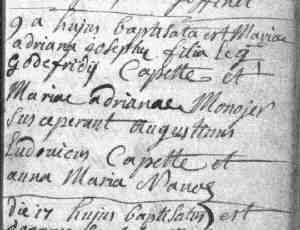 9 a hujus baptisata est Maria
adriana josepha filia leg
Godefridij Capette et
Mariae adrianae Monojer
Susceperunt Augustinus
Ludovicus Capette et
anna Maria
die 17 hujus baptisatus est